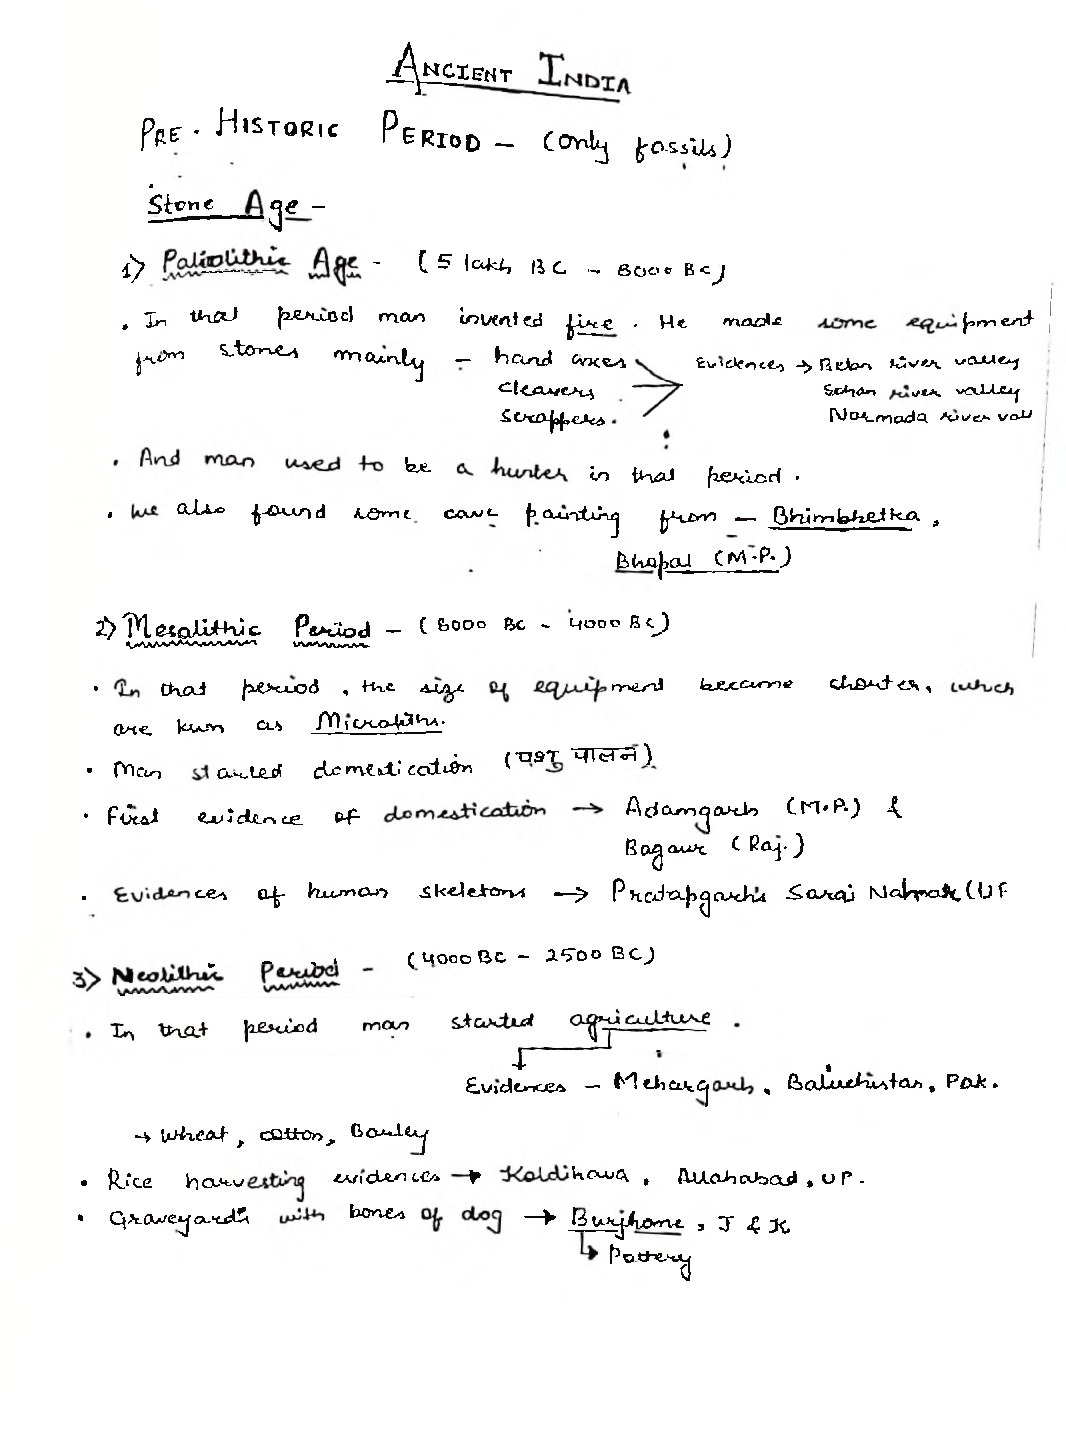 ANCIENT INDIA
PRE-HISTORIC PERIOD - (only fossils)
Stone Age -
1) Paliolithic Age - (5 lakh BC - 8000 BC)
• In that period man invented fire. He made some equipment
from stones mainly - hand axes Evidences → Belan river valley
cleavers Sohan river valley
scrappers. Narmada river vall
• And man used to be a hunter in that period.
• We also found some cave painting from - Bhimbhetka,
Bhopal (M.P.)
2) Mesolithic Period - (8000 BC - 4000 BC)
• In that period, the size of equipment became shorter, which
are kwn as Microliths.
• Man started domestication (पशु पालन)
• First evidence of domestication → Adamgarh (M.P.) &
Bagaur (Raj.)
• Evidences of human skeletons → Pratapgarh's Sarai Nahar (UP
3) Neolithic Period - (4000 BC - 2500 BC)
• In that period man started agriculture.
Evidences - Mehargarh, Baluchistan, Pak.
→ Wheat, cotton, Barley
• Rice harvesting evidences → Koldihava, Allahabad, UP.
• Graveyards with bones of dog → Burjhome, J & K
↳ Pottery